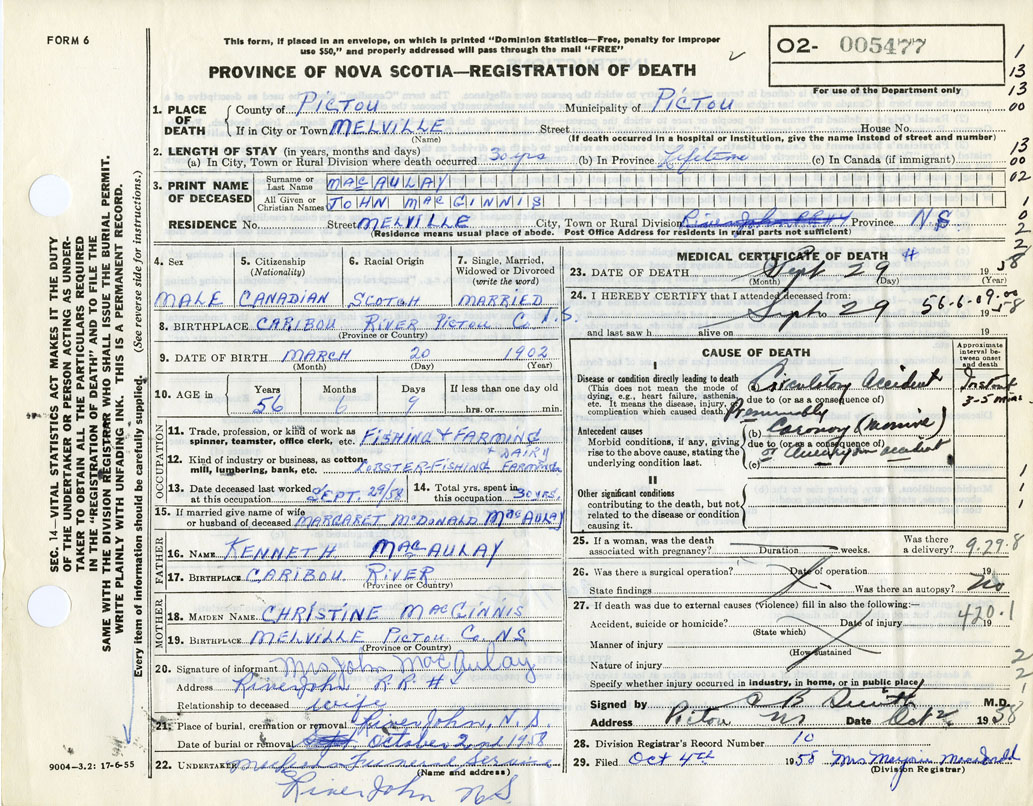 FORM 6
This form, if placed in an envelope, on which is printed "Dominion Statistics—Free, penalty for improper
use $50," and properly addressed will pass through the mail "FREE"
O2- 005477
For use of the Department only
PROVINCE OF NOVA SCOTIA—REGISTRATION OF DEATH
1
13
00
13
00
02
1
0
2
2
8
SEC. 14—VITAL STATISTICS ACT MAKES IT THE DUTY
OF THE UNDERTAKER OR PERSON ACTING AS UNDER-
TAKER TO OBTAIN ALL THE PARTICULARS REQUIRED
IN THE "REGISTRATION OF DEATH" AND TO FILE THE
SAME WITH THE DIVISION REGISTRAR WHO SHALL ISSUE THE BURIAL PERMIT.
WRITE PLAINLY WITH UNFADING INK. THIS IS A PERMANENT RECORD.
Every item of information should be carefully supplied. (See reverse side for instructions.)
1. PLACE OF DEATH
County of PICTOU Municipality of PICTOU
If in City or Town MELVILLE Street House No.
(Name) (If death occurred in a hospital or institution, give the name instead of street and number)
2. LENGTH OF STAY (in years, months and days)
(a) In City, Town or Rural Division where death occurred 30 yrs (b) In Province Lifetime (c) In Canada (if immigrant)
3. PRINT NAME OF DECEASED
Surname or Last Name MACAULAY
All Given or Christian Names JOHN MACGINNIS
RESIDENCE No. Street MELVILLE City, Town or Rural Division River John RR#4 Province N.S.
(Residence means usual place of abode. Post Office Address for residents in rural parts not sufficient)
4. Sex
MALE
5. Citizenship (Nationality)
CANADIAN
6. Racial Origin
SCOTCH
7. Single, Married, Widowed or Divorced (write the word)
MARRIED
8. BIRTHPLACE CARIBOU RIVER PICTOU Co. N.S.
(Province or Country)
9. DATE OF BIRTH MARCH 20 1902
(Month) (Day) (Year)
10. AGE in
Years Months Days If less than one day old
56 6 9 hrs. or min.
OCCUPATION
11. Trade, profession, or kind of work as
spinner, teamster, office clerk, etc. FISHING & FARMING
12. Kind of industry or business, as cotton
mill, lumbering, bank, etc. LOBSTER-FISHING & DAIRY FARMING
13. Date deceased last worked at this occupation SEPT. 29/58
14. Total yrs. spent in this occupation 30 YRS.
15. If married give name of wife
or husband of deceased MARGARET McDONALD MacAULAY
FATHER
16. NAME KENNETH MACAULAY
17. BIRTHPLACE CARIBOU RIVER
(Province or Country)
MOTHER
18. MAIDEN NAME CHRISTINE MACGINNIS
19. BIRTHPLACE MELVILLE PICTOU Co. NS
(Province or Country)
20. Signature of informant Mrs John MacAulay
Address River John R.R. #4
Relationship to deceased wife
21. Place of burial, cremation or removal River John, N.S.
Date of burial or removal Sept. October 2nd 1958
22. UNDERTAKER Funeral Service
(Name and address)
River John N.S.
9004-3.2: 17-6-55
MEDICAL CERTIFICATE OF DEATH #
23. DATE OF DEATH Sept 29 1958
(Month) (Day) (Year)
24. I HEREBY CERTIFY that I attended deceased from:
Sept 29 1958
56-6-09.00
and last saw h alive on 19
CAUSE OF DEATH
Approximate interval between onset and death
I
Disease or condition directly leading to death
(This does not mean the mode of
dying, e.g., heart failure, asthenia,
etc. It means the disease, injury, or
complication which caused death.)
Circulatory Accident
Instant
3-5 mins
due to (or as a consequence of)
Presumably
Antecedent causes
Morbid conditions, if any, giving
rise to the above cause, stating the
underlying condition last.
(b) Coronary (Massive)
due to (or as a consequence of)
(c) or accident
1
II
Other significant conditions
contributing to the death, but not
related to the disease or condition
causing it.
1
1
25. If a woman, was the death
associated with pregnancy? Duration weeks. Was there a delivery? 9.29.8
26. Was there a surgical operation? Date of operation 19
State findings Was there an autopsy? No
27. If death was due to external causes (violence) fill in also the following:—
Accident, suicide or homicide? Date of injury 19
(State which)
420.1
Manner of injury
(How sustained
Nature of injury
2
2
Specify whether injury occurred in industry, in home, or in public place
Signed by M.D.
Address Pictou NS Date Oct 2 1958
28. Division Registrar's Record Number 10
29. Filed Oct 4th 1958 Mrs Marjorie MacDonald
(Division Registrar)